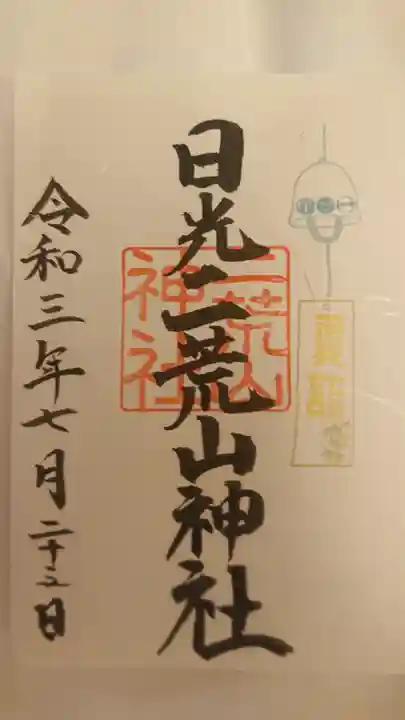 夏詣
日光二荒山神社
二荒山
神社
令和三年七月二十五日